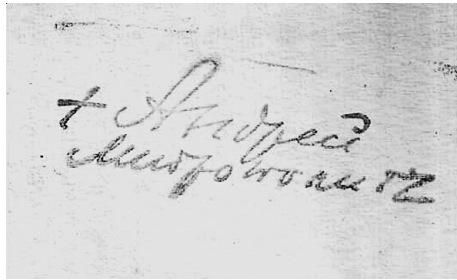 + Андрей
Митрополит